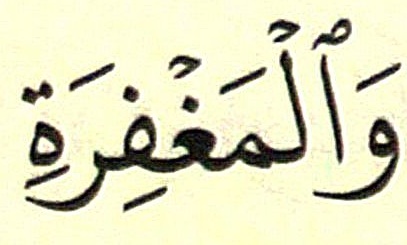 وَٱلْمَغْفِرَةِ